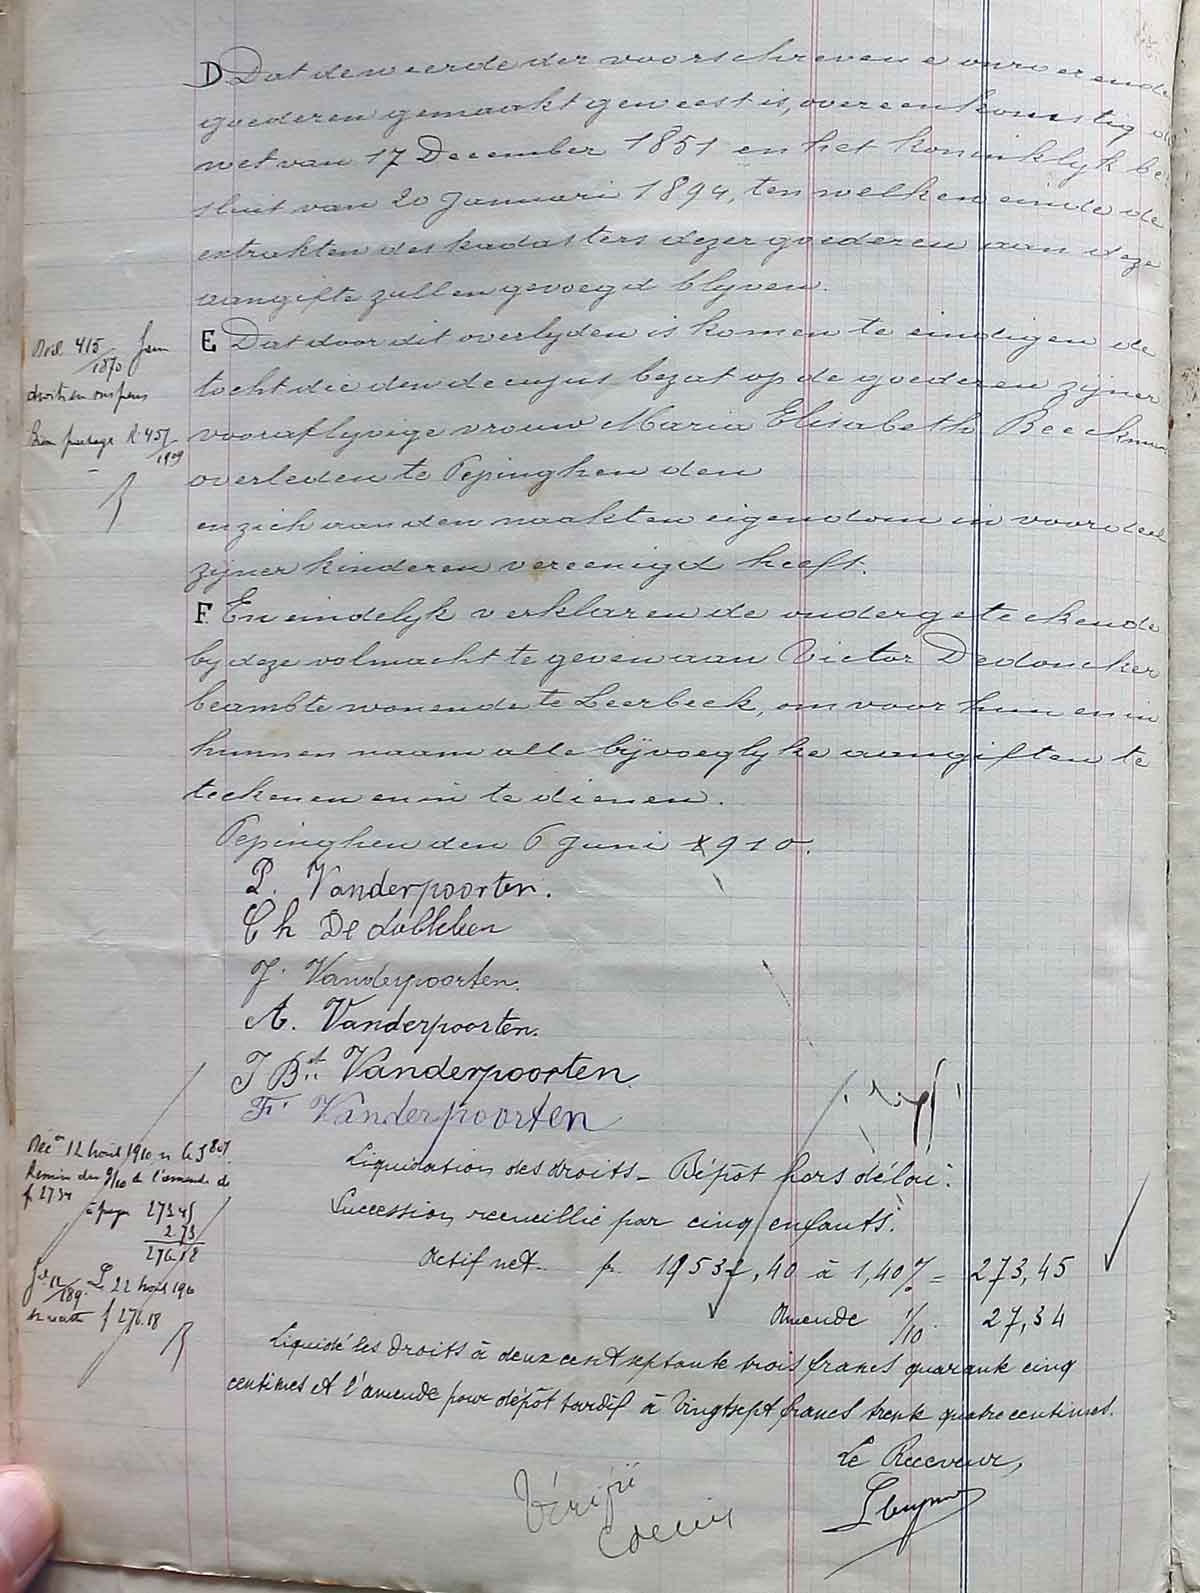 D Dat de weerde der voorschreven e onroerende
goederen gemaakt geweest is, overeenkomstig de
wet van 17 December 1851 en het koninklyk be
sluit van 20 Januari 1894, ten welken einde de
extrakten des kadasters dezer goederen aan deze
aangifte zullen gevoegd blyven.
E Dat door dit overlyden is komen te eindigen de
tocht die den decujus bezat op de goederen zijner
vooraflyvige vrouw Maria Elisabeth Beeckman
overleden te Pepinghen den
en zich aan den naakten eigendom in voordeel
zijner kinderen vereenigd heeft.
F En eindelyk verklaren de ondergeteekende
by deze volmacht te geven aan Victor Dedoncker
beambte wonende te Leerbeek, om voor hun en in
hunnen naam alle bijvoeglyke aangiften te
teekenen en in te dienen.
Pepinghen den 6 Juni 1910.
P. Vanderpoorten.
Ch De dobbeleer
J. Vanderpoorten.
A. Vanderpoorten.
J Bte Vanderpoorten
Fs Vanderpoorten
415
1870
droits en suspens
R. 457
1909
12 1910 n
Remise des 9/10 de l'amende de
f 27 34
à payer 273.45
2.73
276.18
189. 22 1910
f 276.18
Liquidation des droits - Dépôt hors délai.
Succession recueillie par cinq enfants.
Actif net. fr. 19532,40 à 1,40 % = 273,45
Amende 1/10 27,34
Liquidé les droits à deux cent septante trois francs quarante cinq
centimes et l'amende pour dépôt tardif à vingt sept francs trente quatre centimes.
Le Receveur,
Vérifié